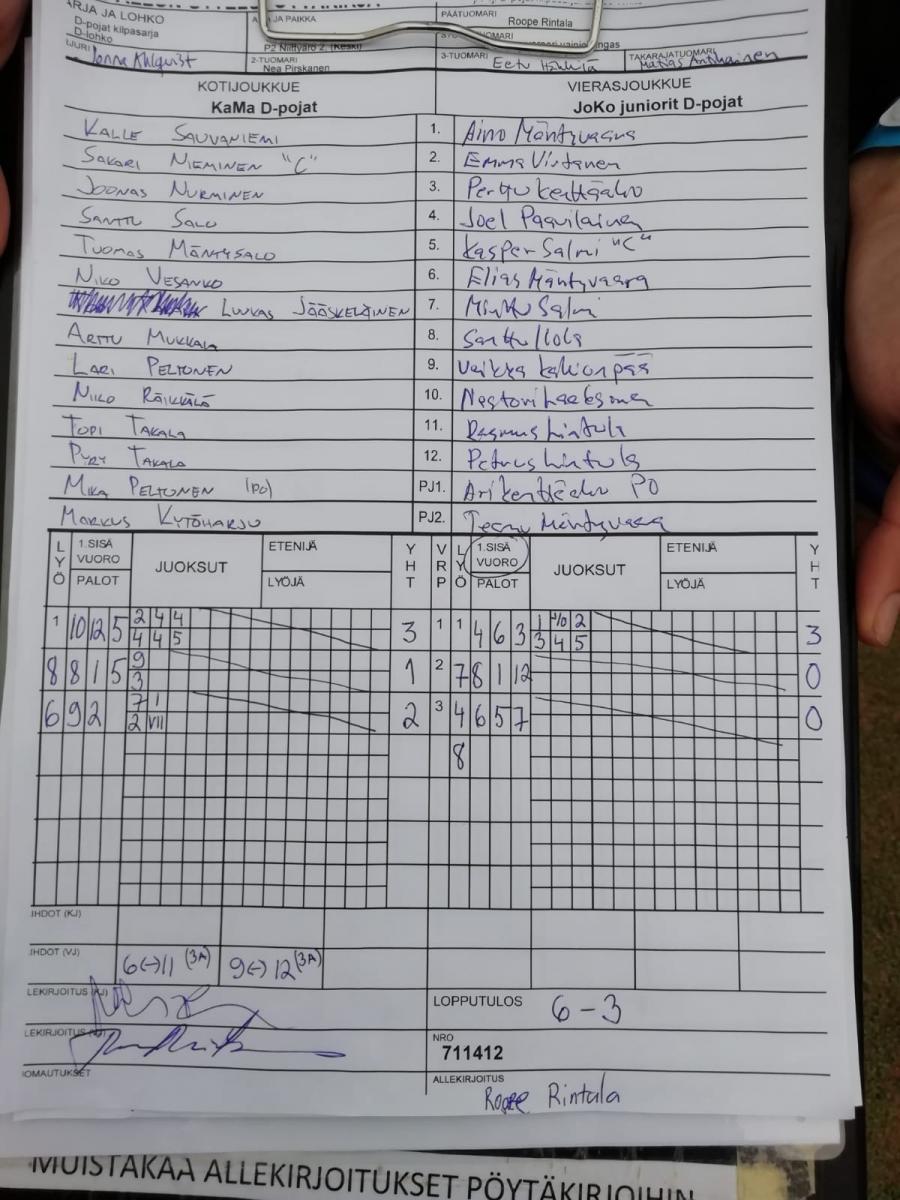 ARJA JA LOHKO
D-pojat kilpasarja
D-lohko
JA PAIKKA
P2 Niittyaro 2, (Keski)
PÄÄTUOMARI
Roope Rintala
UURI
Jonna Ahlqvist
2-TUOMARI
Nea Pirskanen
3-TUOMARI
Eetu
TAKARAJATUOMARI
Matias Antikainen
KOTIJOUKKUE
KaMa D-pojat
VIERASJOUKKUE
JoKo juniorit D-pojat
KALLE SAUVANIEMI 1. Aino Mäntyvaara
SAKARI NIEMINEN "C" 2. Emma Virtanen
JOONAS NURMINEN 3. Perttu Kenttäaho
SANTTU SALO 4. Joel Paavilainen
TUOMAS MÄNTYSALO 5. Kasper Salmi "C"
NIKO VESANKO 6. Elias Mäntyvaara
LUUKAS JÄÄSKELÄINEN 7. Minttu Salmi
ARTTU MUKKALA 8. Santtu Ilola
LARI PELTONEN 9. Veikka Kalionpää
NIKO RÄIKKÄLÄ 10. Nestori
TOPI TAKALA 11. Rasmus Lintula
PYRY TAKALA 12. Petrus Lintula
MIKA PELTONEN (PO) PJ1. Ari Kenttäaho PO
MARKUS KYTÖHARJU PJ2. Teemu Mäntyvaara
LYÖ 1.SISÄ VUORO PALOT JUOKSUT ETENIJÄ LYÖJÄ YHT VRP LYÖ 1.SISÄ VUORO PALOT JUOKSUT ETENIJÄ LYÖJÄ YHT
1 10 12 5 2 4 4 3 1 1 4 6 3 1 10 2 3
4 4 5 3 4 5
8 8 1 5 9 1 2 7 8 1 12 0
3
6 9 2 7 1 2 3 4 6 5 7 0
2 VII
8
IHDOT (KJ)
IHDOT (VJ) 6<->11 (3A) 9<->12 (3A)
LEKIRJOITUS (KJ)
LOPPUTULOS 6-3
LEKIRJOITUS
NRO
711412
IOMAUTUKSET
ALLEKIRJOITUS
Roope Rintala
MUISTAKAA ALLEKIRJOITUKSET PÖYTÄKIRJOIHIN